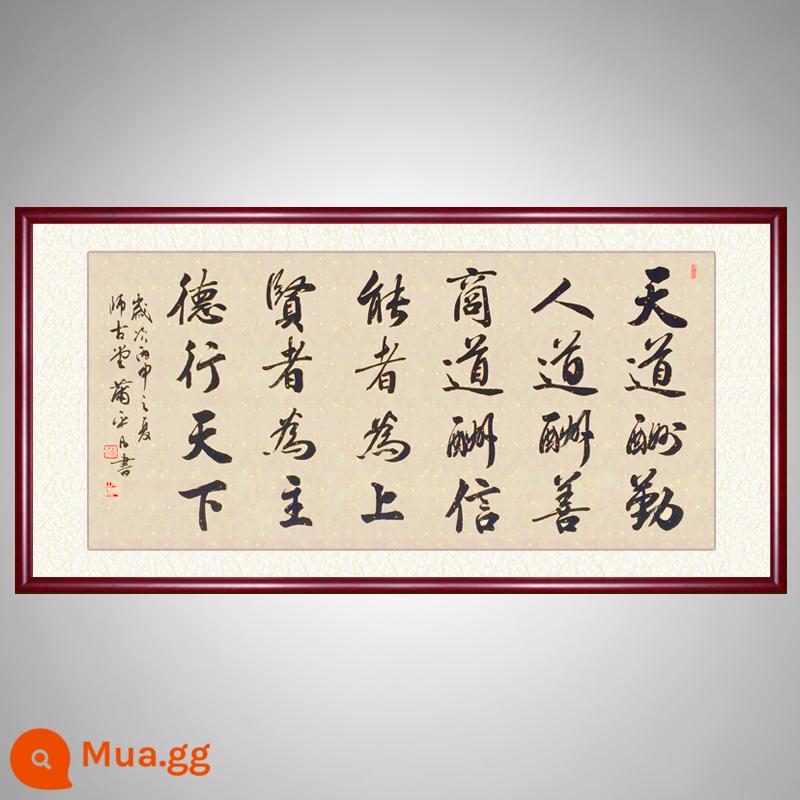 天道酬勤
人道酬善
商道酬信
能者為上
賢者為主
德行天下
歲次丙申之夏
師古堂
書
Mua.gg